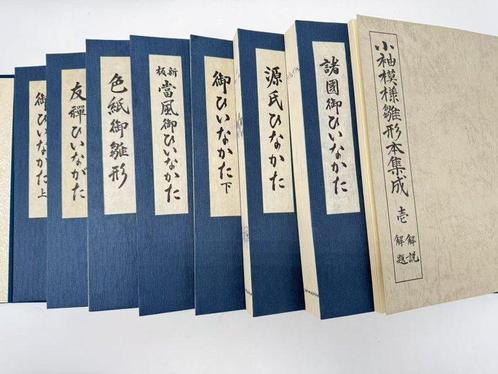 小袖模様雛形本集成 壱 解説 解題
諸國御ひいなかた
源氏ひなかた
御ひいなかた 下
新板 當風御ひいなかた
色紙御雛形
友禪ひいながた
御ひいなかた 上